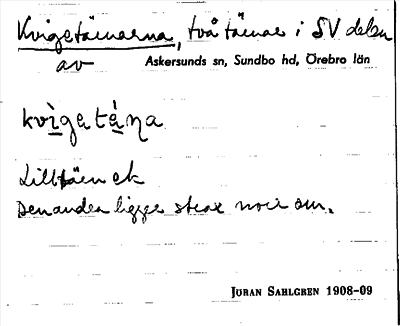 Kvigetärnarna, två tärnar i SV delen
av Askersunds sn, Sundbo hd, Örebro län
kvìgetä́ṇa
Lilltjärn ek
Den andra ligger strax norr om.
JÖRAN SAHLGREN 1908-09